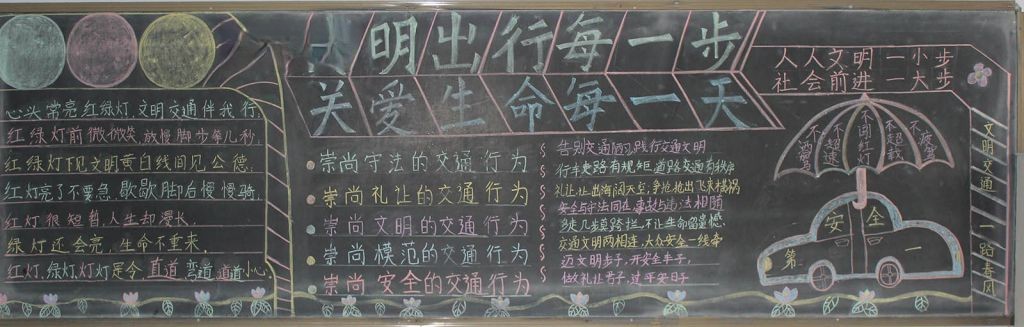 明出行每一步
关爱生命每一天
心头常亮红绿灯 文明交通伴我行,
红绿灯前微微笑 放慢脚步等几秒,
红绿灯下见文明 黄白线间见公德,
红灯亮了不要急, 歇歇脚后慢慢骑,
红灯很短暂 人生却漫长,
绿灯还会亮, 生命不重来,
红灯,绿灯,灯灯是令,直道 弯道 道道小心,
崇尚守法的交通行为
崇尚礼让的交通行为
崇尚文明的交通行为
崇尚模范的交通行为
崇尚安全的交通行为
告别交通陋习践行交通文明
行车走路有规矩 道路交通有秩序
礼让,让出海阔天空,争抢,抢出飞来横祸
安全与守法同在,事故与违法相随
多走几步路,不让生命留遗憾,
交通文明两相连,大众安全一线牵
迈文明步子,开安全车子,
做礼让君子,过平安日子
人人文明一小步
社会前进一大步
不酒驾
不超速
不闯红灯
不超载
不疲劳
安全
第一
文明交通 一路春风